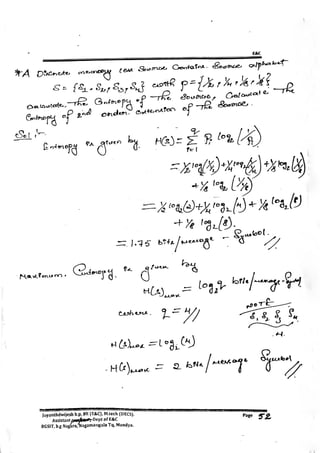 E&C
*A Discrete memory less Source Contains Source alphabet
S = {S1, S2, S3, S4} with P = {1/2, 1/4, 1/8, 1/8}
Calculate The Entropy of The Source, Calculate The
Entropy of 2nd order extension of The Source.
Sol :-
Entropy is given by H(s) = Σ Pi log2 (1/Pi)
i=1
= 1/2 log (1/1/2) + 1/4 log2 (1/1/4) + 1/8 log2 (1/1/8)
+ 1/8 log2 (1/1/8)
= 1/2 log2 (2) + 1/4 log2 (4) + 1/8 log2 (8)
+ 1/8 log2 (8).
= 1.75 bits/message - Symbol.
Maximum. Entropy. is given by
H(s)max = log2 q bits/message-Symbol
where. q = 4 //
NOTE
S1 S2 S3 S4
4.
H(s)max = log2 (4)
. H(s)max = 2 bits/message Symbol //
Jayanthdwijesh h.p, BE (T&C), M.tech (DECS).
Assistant Dept of E&C
BGSIT, b.g Nagara, Nagamangala Tq, Mandya.
Page 52